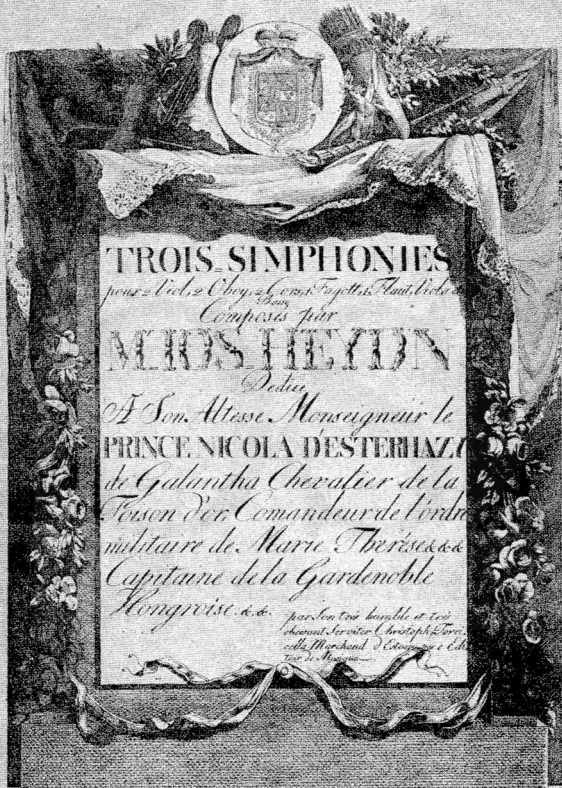 TROIS=SIMPHONIES
pour 2 Viol, 2 Oboy, 2 Corn, 1 Fagott, 1 Flaut, Viola &
Bass
Composés par
M. IOS. HEYDN
Dediée
A Son Altesse Monseigneur le
PRINCE NICOLA D'ESTERHAZI
de Galantha Chevalier de la
Toison d'or, Comandeur de l'ordre
militaire de Marie Therése &.&.&
Capitaine de la Gardenoble
Hongroise. &.&.
par Son très humble et très
obeisant Serviter Christoph Torri,
cella Marchand d'Estampes e Edi
teur de Musique